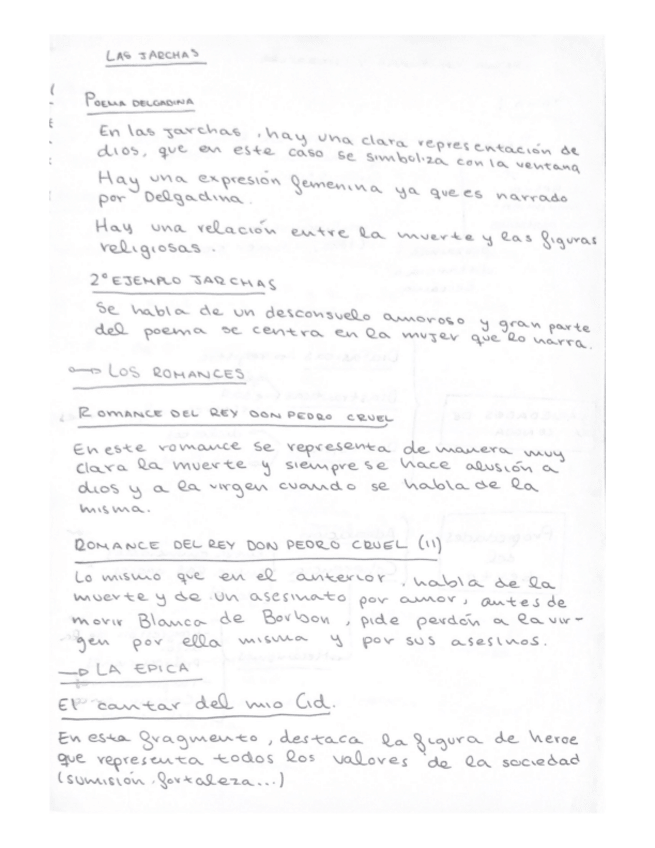 LAS JARCHAS
POEMA DELGADINA
En las jarchas, hay una clara representación de
dios, que en este caso se simboliza con la ventana
Hay una expresión femenina ya que es narrado
por Delgadina.
Hay una relación entre la muerte y las figuras
religiosas.
2º EJEMPLO JARCHAS
Se habla de un desconsuelo amoroso y gran parte
del poema se centra en la mujer que lo narra.
→ LOS ROMANCES
ROMANCE DEL REY DON PEDRO CRUEL
En este romance se representa de manera muy
clara la muerte y siempre se hace alusión a
dios y a la virgen cuando se habla de la
misma.
ROMANCE DEL REY DON PEDRO CRUEL (II)
Lo mismo que en el anterior, habla de la
muerte y de un asesinato por amor, antes de
morir Blanca de Borbon, pide perdón a la vir-
gen por ella misma y por sus asesinos.
→ LA EPICA
El cantar del mio Cid.
En este fragmento, destaca la figura de heroe
que representa todos los valores de la sociedad
(sumisión, fortaleza...)